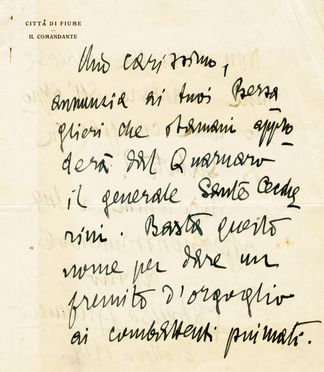 CITTÀ DI FIUME
IL COMANDANTE
Mio carissimo,
annuncia ai tuoi Bersa
glieri che stamani appro
derà dal Quarnaro
il generale Sante Ceche
rini. Basta questo
nome per dare un
fremito d'orgoglio
ai combattenti piumati.